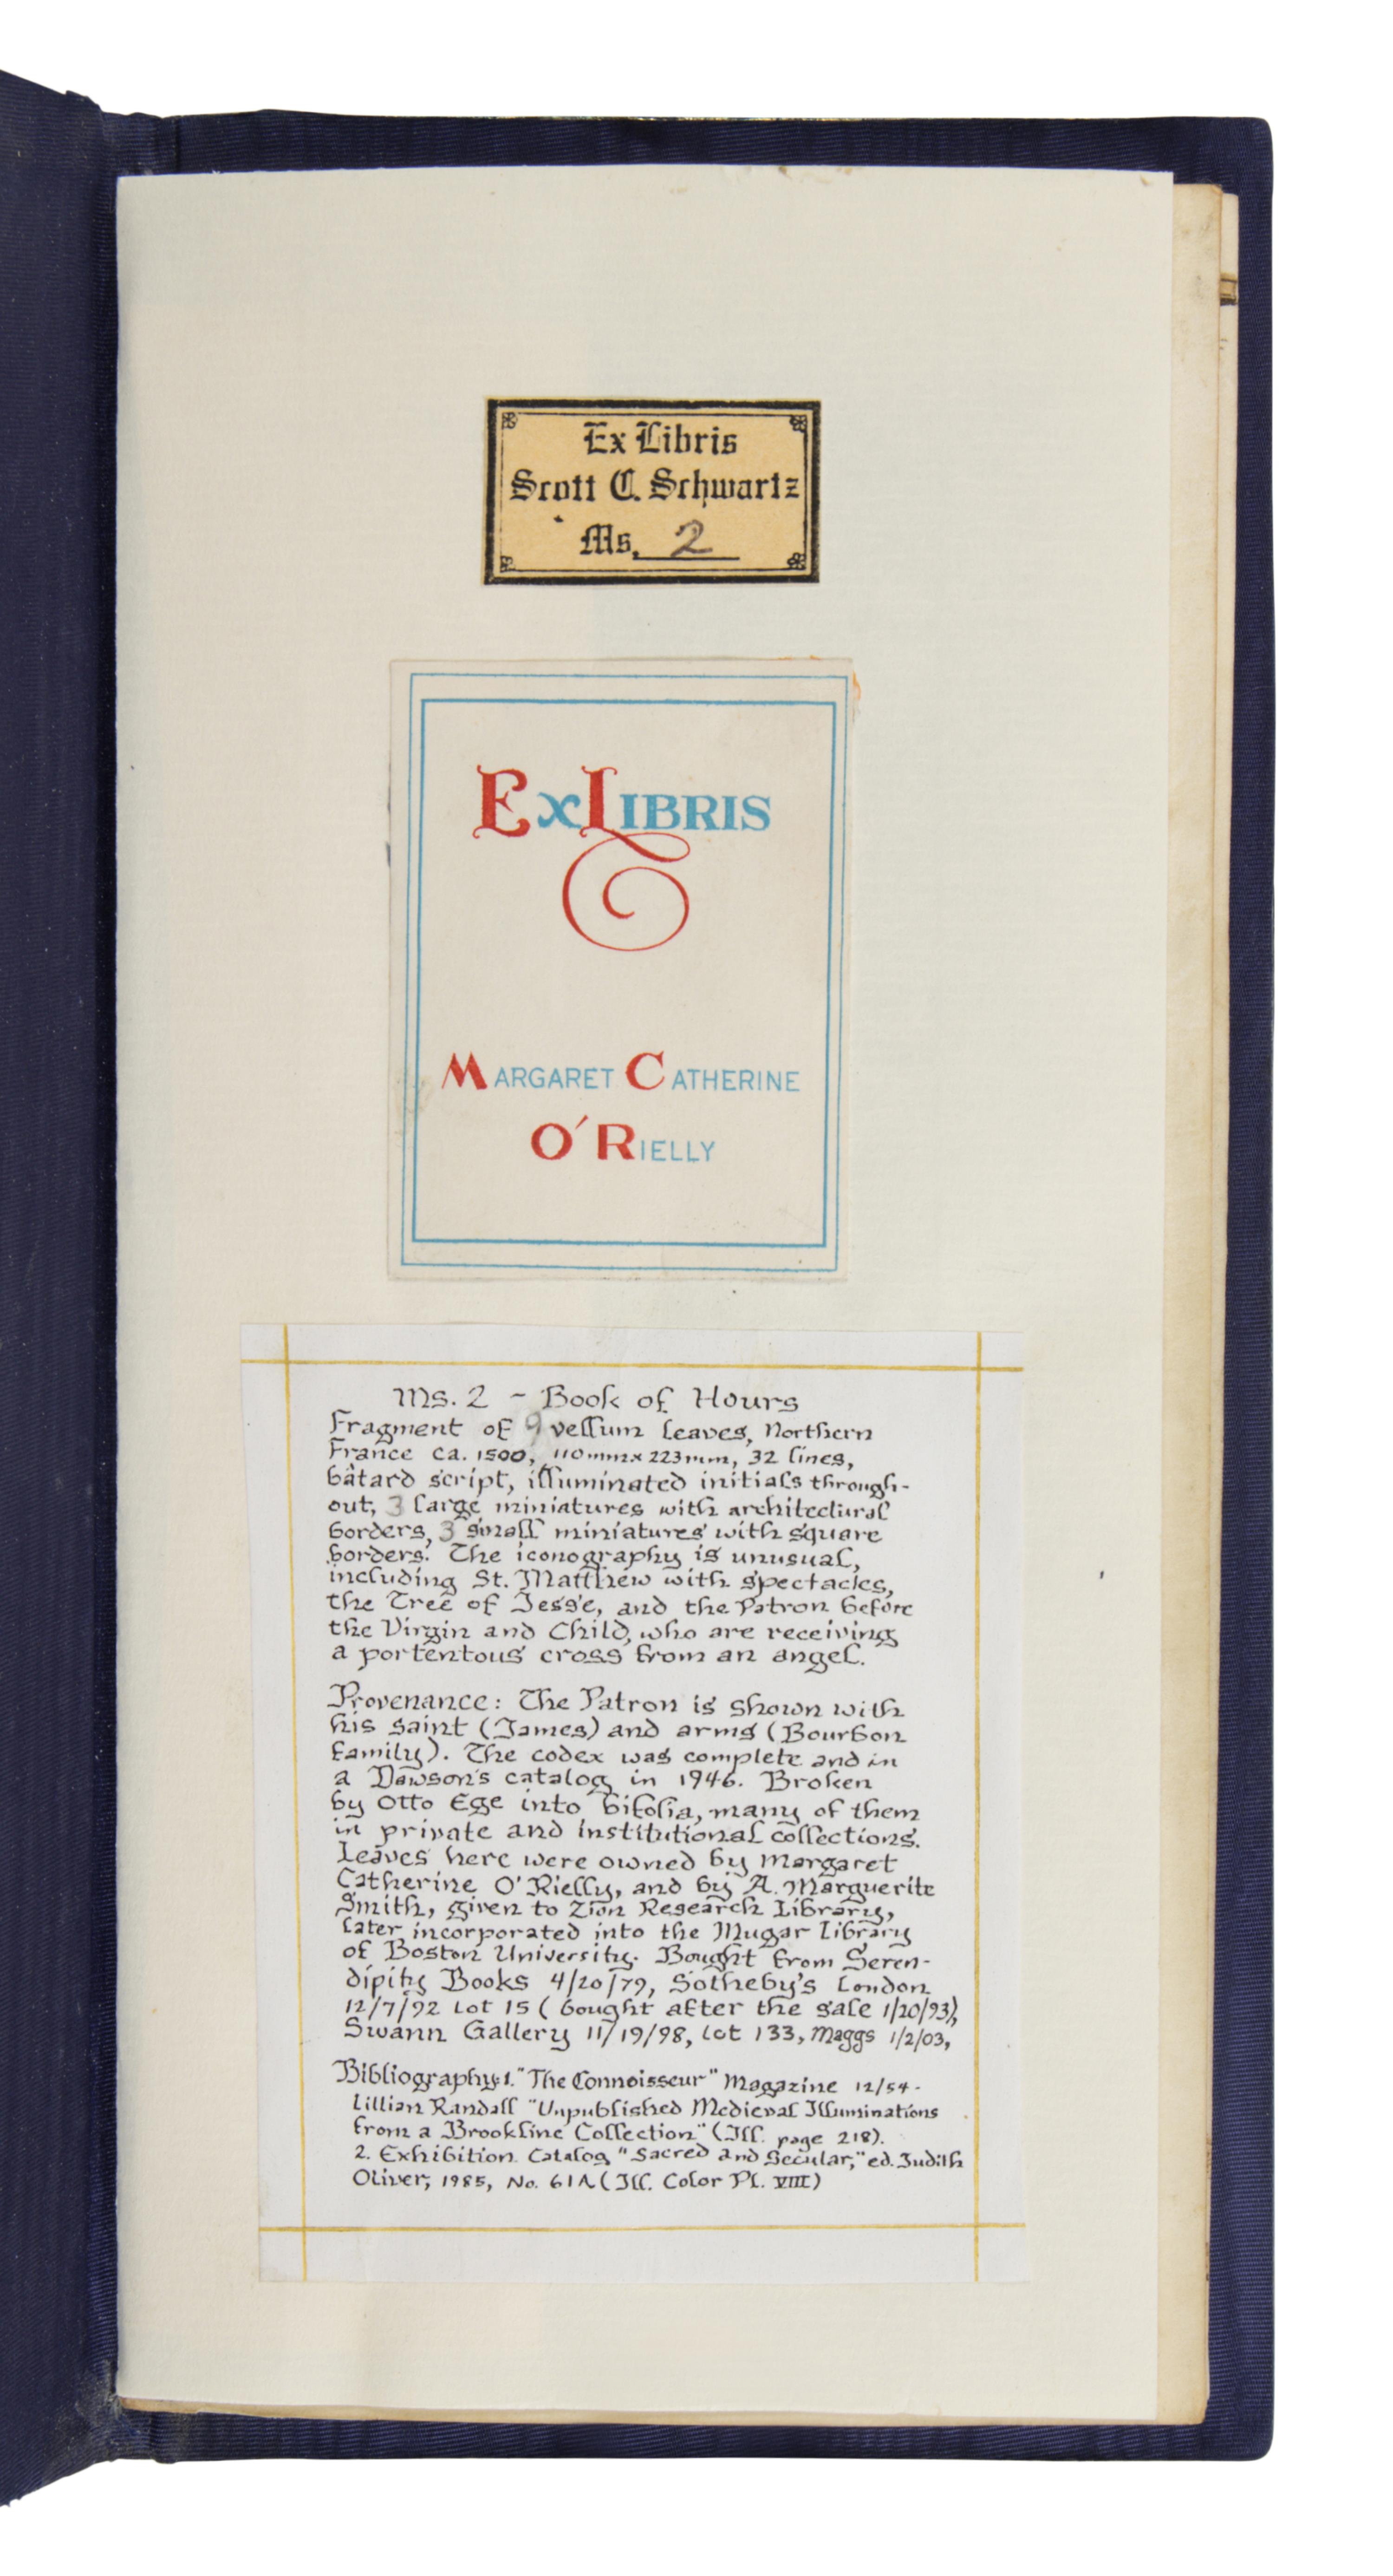 Ex Libris
Scott C. Schwartz
Ms. 2
EX LIBRIS
MARGARET CATHERINE
O'RIELLY
Ms. 2 - Book of Hours
Fragment of 9 vellum leaves, Northern
France ca. 1500, 110mm x 223mm, 32 lines,
bâtard script, illuminated initials through-
out, 3 large miniatures with architectural
borders, 3 small miniatures with square
borders. The iconography is unusual,
including St. Matthew with spectacles,
the Tree of Jesse, and the Patron before
the Virgin and Child, who are receiving
a portentous cross from an angel.
Provenance: The Patron is shown with
his saint (James) and arms (Bourbon
family). The codex was complete and in
a Dawson's catalog in 1946. Broken
by Otto Ege into bifolia, many of them
in private and institutional collections.
Leaves here were owned by Margaret
Catherine O'Rielly, and by A. Marguerite
Smith, given to Zion Research Library,
later incorporated into the Mugar Library
of Boston University. Bought from Seren-
dipity Books 4/20/79, Sotheby's London
12/7/92 Lot 15 (bought after the sale 1/20/93),
Swann Gallery 11/19/98, lot 133, Maggs 1/2/03,
Bibliography: 1. "The Connoisseur" Magazine 12/54-
Lillian Randall "Unpublished Medieval Illuminations
from a Brookline Collection" (Ill. page 218).
2. Exhibition Catalog "Sacred and Secular," ed. Judith
Oliver, 1985, No. 61A (Ill. Color Pl. VIII)